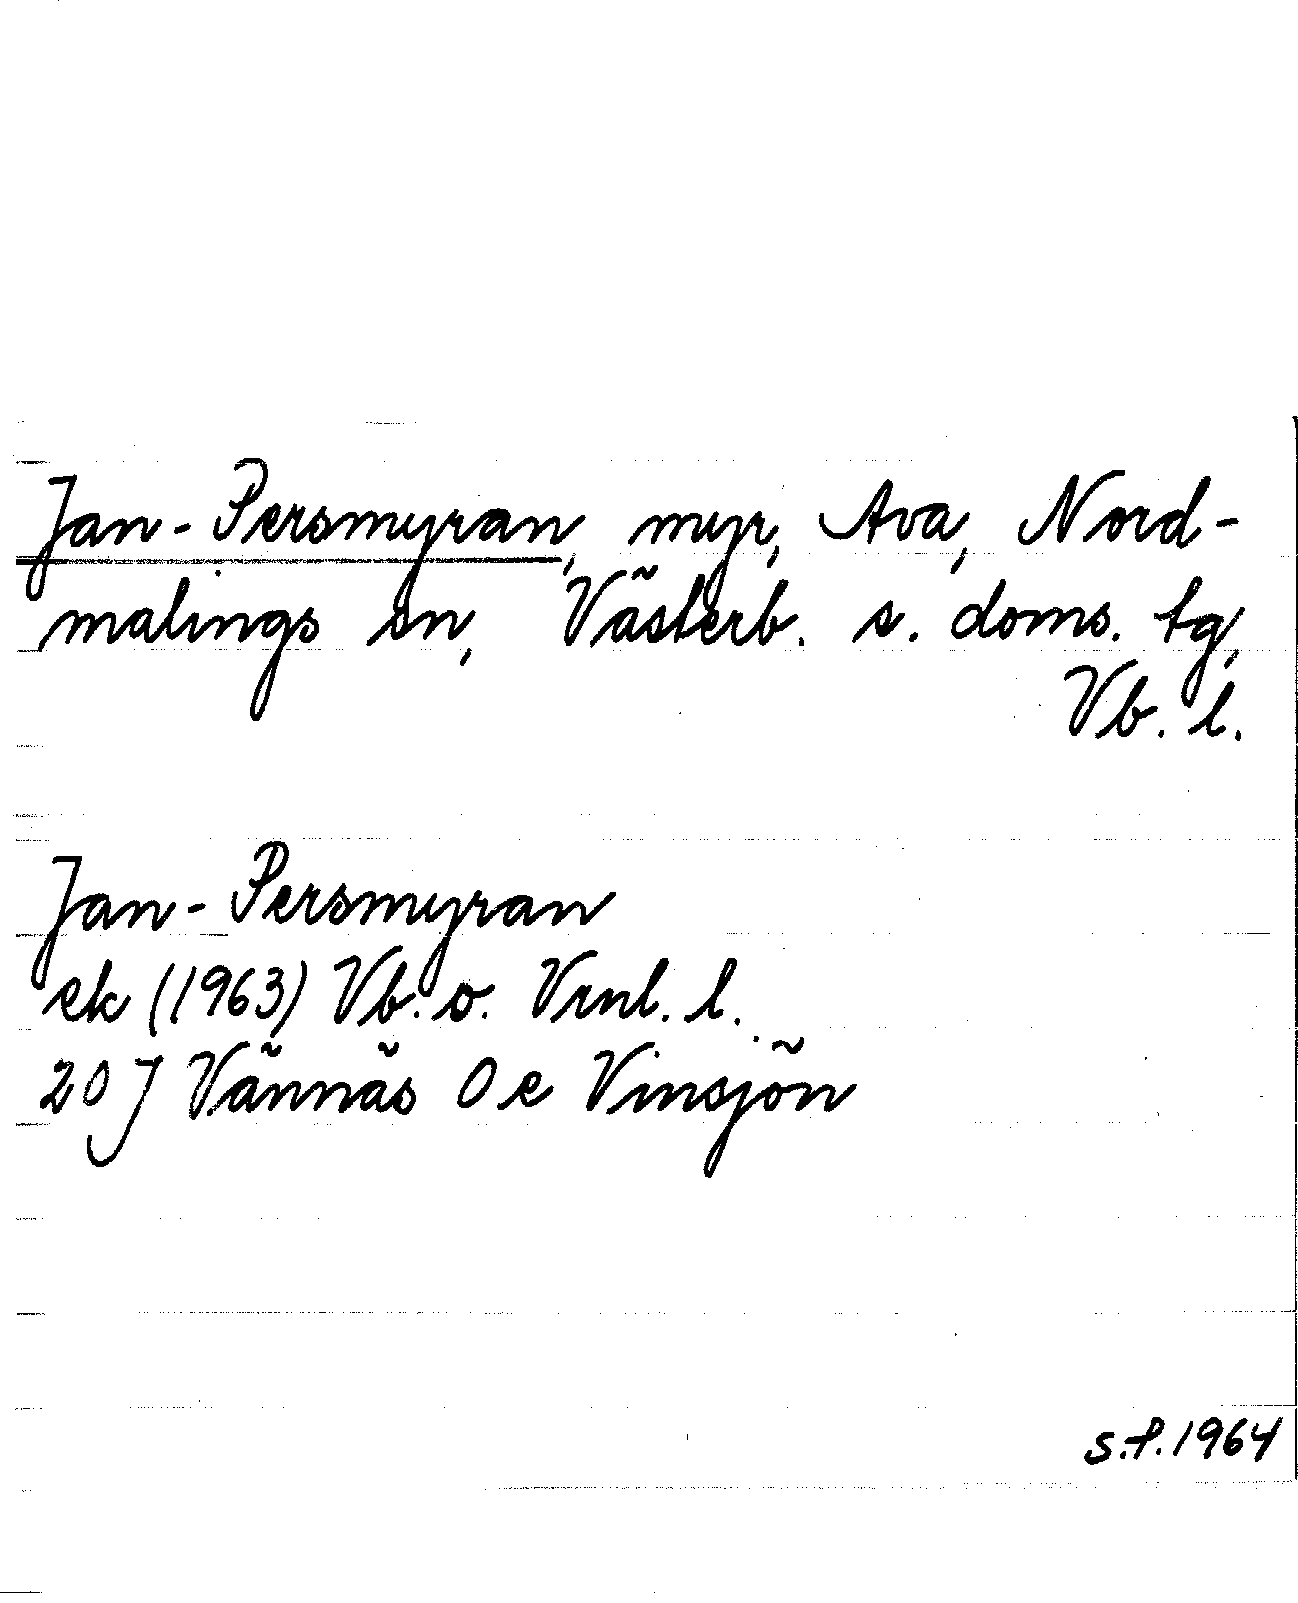 Jan-Persmyran, myr, Ava, Nord-
malings sn, Västerb. s. doms. tg,
Vb. l.
Jan-Persmyran
ek (1963) Vb. o. Vrnl. l.
20 J Vännäs 0 e Vinsjön
S.f. 1964